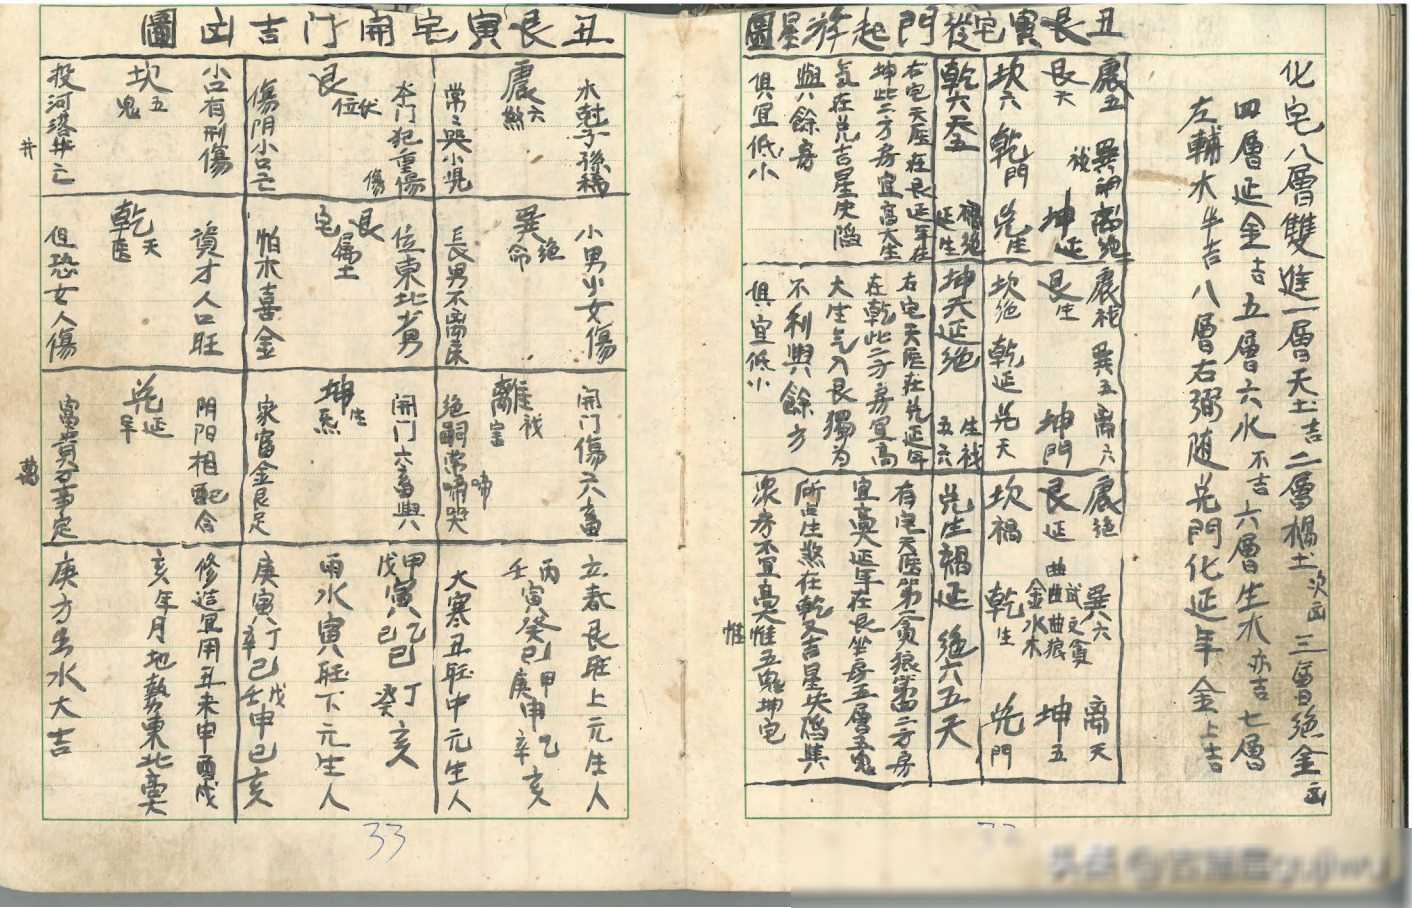 化宅八層雙進一層天土吉二層禍土次凶三層絕金凶
四層延金吉五層六水不吉六層生木亦吉七層
左輔木半吉八層右弼随兑門化延年金上吉
丑艮寅宅從門起游星圖
震五 巽禍 離絕
艮天 坤延
坎六 乾門 兑生
乾六天五 禍絕延生
右宅天医在艮延年在
坤此二方房宜高大生
氣在兑吉星失陷
與餘房
俱宜低小
震禍 巽五 離六
艮生 坤門
坎絕 乾延 兑天
坤天延絕 生禍五六
右宅天医在兑延年
在乾此二方房宜高
大生气入艮獨为
不利與餘方
俱宜低小
震絕 巽六 離天
艮延 坤五
坎禍 乾生 兑門
兑生禍延絕六五天
有宅天医第二貪狼第二方房
宜高延年在艮坐房五層五鬼
所生煞在乾又吉星失陷其
衆房不宜高惟五鬼坤宅
丑艮寅宅開门吉凶圖
水尅子孫稀
震六煞
常々哭小児
本门犯重傷
艮伏位
傷阴小口亡
小口有刑傷
坎五鬼
投河落井亡
小男少女傷
巽絕命
長男不离床
位東北少男
艮宅属土
怕木喜金
資才人口旺
乾天医
但恐女人傷
開门傷六畜
離禍害
絕嗣常啼哭
開门六畜興
坤生炁
家富金良足
阴阳相配合
兑延年
富貴萬事定
立春艮旺上元生人
丙寅癸巳甲申乙亥
壬 庚 辛
大寒丑旺中元生人
甲寅乙巳丁亥
戊 己 癸
雨水寅旺下元生人
庚寅丁己戊申己亥
辛 壬
修造宜用丑未申酉戌
亥年月地勢東北高
庚方出水大吉
33